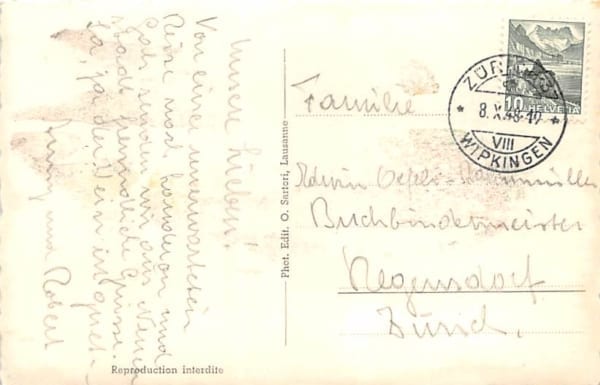 Unsere Lieben!
Von einer unerwarteten
Reise nach und
Genf senden wir aus
Stadt freundliche Grüsse.
Ja, ja der Wein ist gut
und Robert
Phot. Edit. O. Sartori, Lausanne
Reproduction interdite
ZÜRICH
8.X.48-12
VIII
WIPKINGEN
10 HELVETIA
Familie
Edwin
Buchbindermeister
Regensdorf
Zürich.